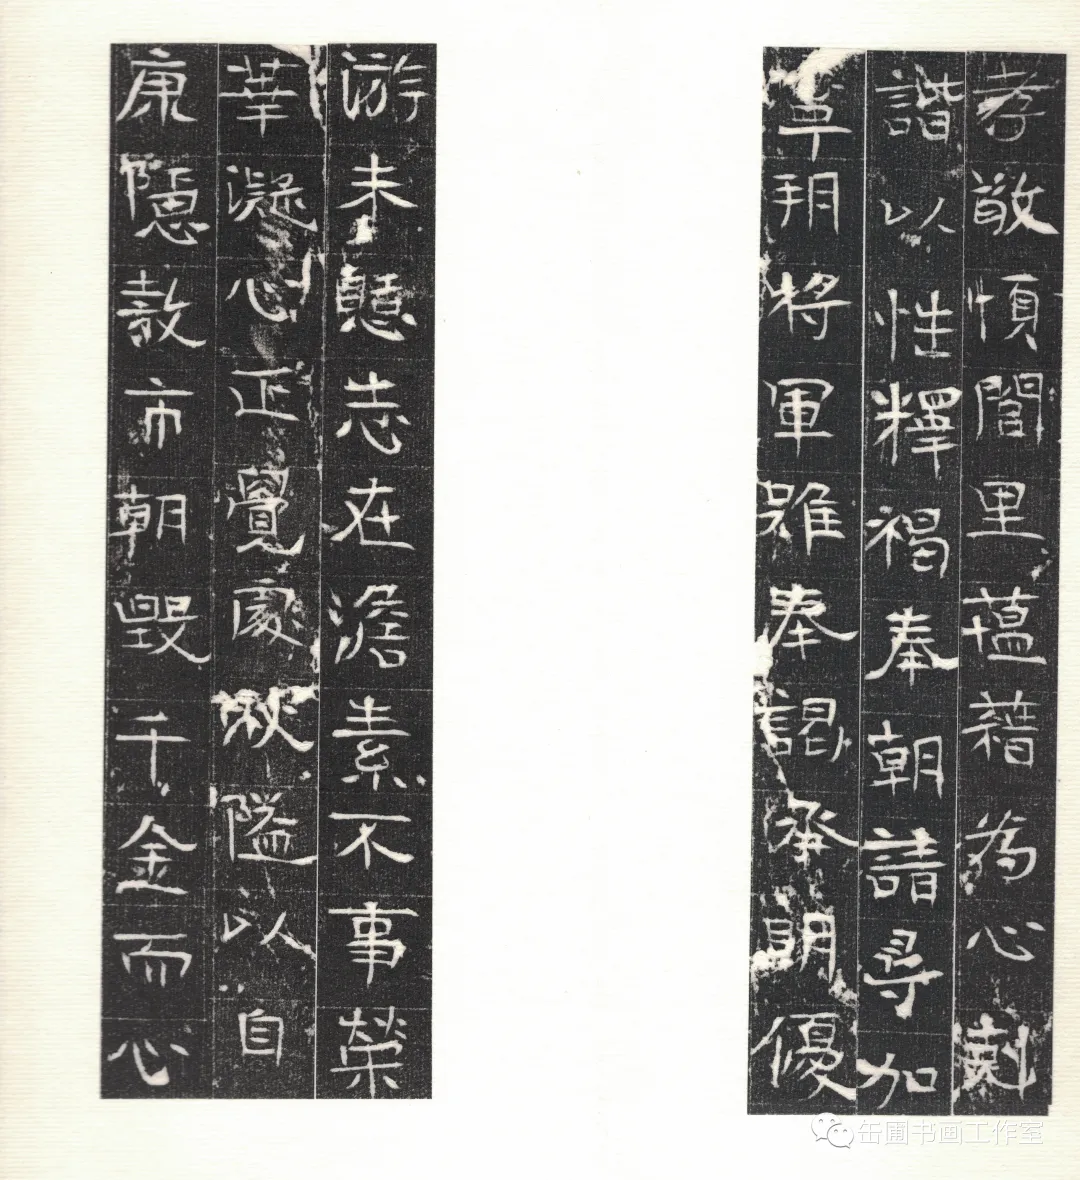 孝敬慎閭里蘊藉為心剋
諧以性釋褐奉朝請尋加
寧朔將軍雖奉謁承明優
游未志在澹素不事榮
華凝心正覺處湫隘以自
康隱敖市朝毀千金而心
缶圃书画工作室